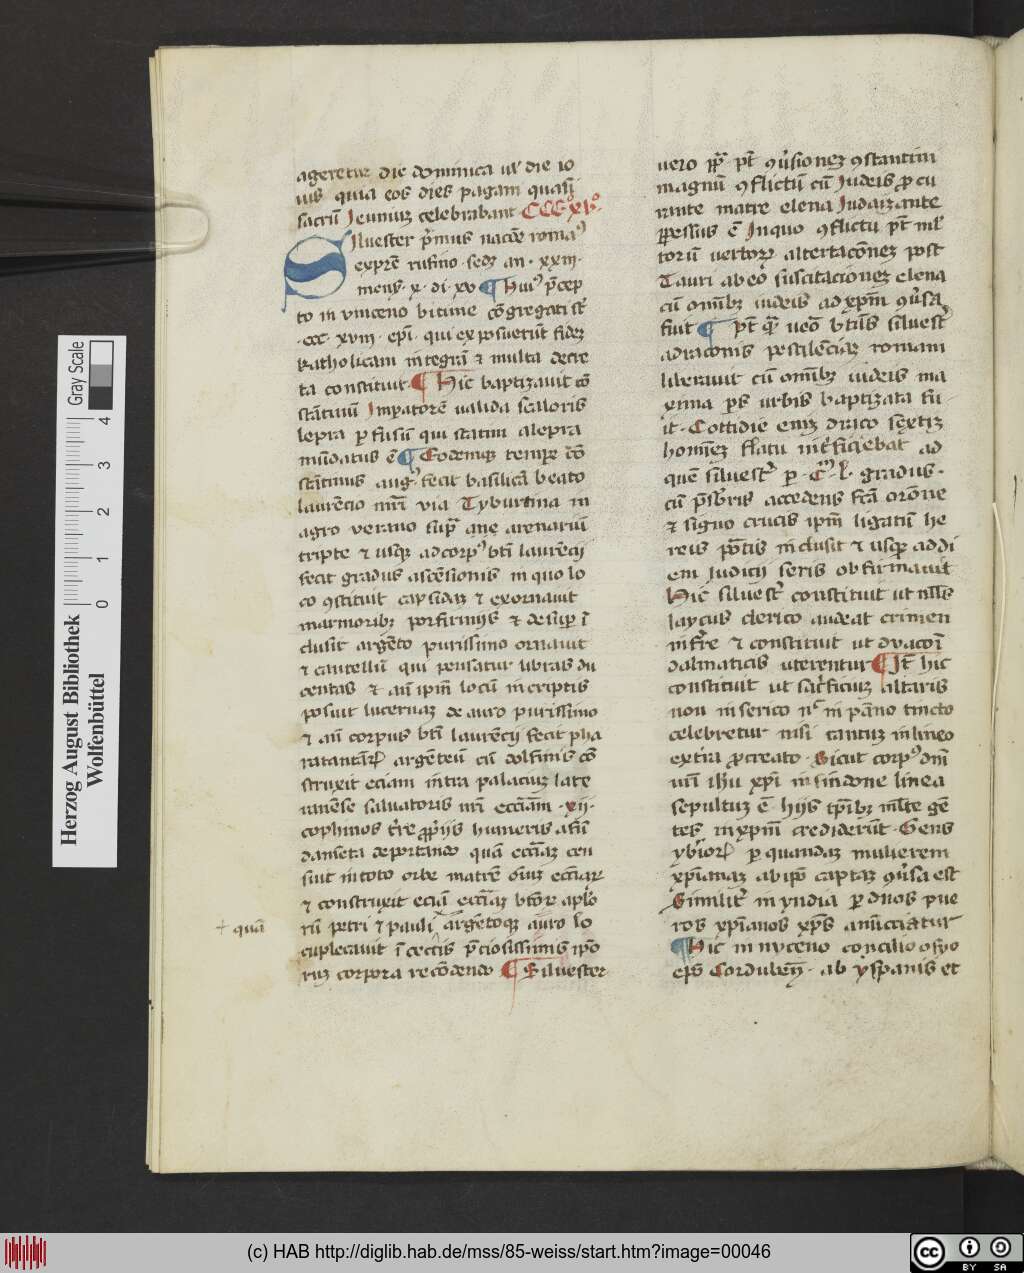 ageretur die dominica ul' die io
uis quia eos dies pagani quasi
sacrū Ieuniuz celebrabant CCCºxvº.
Siluester p̄mus nacōe romaꝰ
ex prē rufino · sedꝫ an · xxiii ·
mens̄ · x · di · xv ¶ Huiꝰ p̄cep
to in vinceno bitinie cōgregati st̄
· ccc · xviii · ep̄i · qui exposuerunt fidez
katholicam integrā ⁊ multa decre
ta constituit ¶ Hic baptizauit cō
stātinū Impatorē ualida scaloris
lepra p̱fusū qui statim a lepra
mūdatus ē ¶ Eodemqꝫ temp̱e cō
stātinus augꝰ fecit basilicā beato
laurēcio mr̄i via Tyburtina in
agro verano sup̄ ane arenariū
cripte ⁊ usqꝫ ad corpꝰ bt̄i laurēcij
fecit gradus ascēsionis in quo lo
co ꝯstituit capsidaz ⁊ exornauit
marmoribꝫ porfirinijs ⁊ desup̱ ī
clusit argēto purissimo ornauit
⁊ cancellū qui pensatur libras du
centas ⁊ an̄ ip̄m locū in criptis
posuit lucernaz de auro purissimo
⁊ an̄ corpus bt̄i laurēcij fecit pha
ratantāꝝ argēteū cū dolfinis cō
struxit eciam intra palaciuz late
ranēse saluatoris nr̄i eccīam · xii ·
cophinos t̄re p̱p̄ijs humeris a fū
damēta deportando quā eccīaz cen
suit in toto orbe matrē oīuz eccīaꝝ
⁊ construxit eciā eccīaz btōꝝ aplo
+ quā
rū petri ⁊ pauli argētoqꝫ auro lo
cupletauit ī tectis p̄ciosissimis ip̄o
ruz corpora recōdendo ¶ Siluester
uero pp̄ pt̄ ꝯūsionez ꝯstantini
magnū ꝯflictū cū Iudeis ꝓcu
rante matre elena Iudaizante
ꝑpessus ē In quo ꝯflictu pt̄ ml̄
torū uerboꝝ altertacōnez post
Tauri ab eo suscitacionez elena
cū omībꝫ iudeis ad xp̄m ꝯūsa
fuit ¶ pt̄ q̄ uero bt̄us siluestꝰ
a draconis pestilēciaz romam
liberauit cū omībꝫ iudeis ma
xima p̄s urbis baptizata fu
it · Cottidie eniz draco sēxtiz
homīez flatu int̄ficiebat ad
quē siluestꝰ p̱ · Cᵐ l · gradus ·
cū p̄sbris accedens fcā orōne
⁊ signo crucis ip̄m ligatū he
reis portis inclusit ⁊ usqꝫ ad di
em Iudicij seris obfirmauit
Hic siluestꝰ constituit ut nl̄ls
laycus clerico audeat crimen
infr̄re ⁊ constituit ut dyaconī
dalmaticis uterentur ¶ It̄ hic
constituit ut sac̄ficiuz altaris
non in serico nꝰ in pāno tincto
celebretur nisi tantuz in lineo
ex tr̄ra ꝓcreato · Sicut corpꝰ dn̄i
nr̄i ihu xp̄i in sindone linea
sepultuz ē hijs tp̄ibꝫ ml̄te gē
tes in xp̄m crediderūt · Gens
ybioꝝ p̱ quandaz mulierem
xp̄ianaz ab ip̄o captaz ꝯūsa est
Similit̄ in yndia p̱ duos pue
ros xp̄ianos xp̄s anūcciatur
¶ Hic in nyceno concilio osyo
ep̄s Cordubeñ · ab yspanis et
Herzog August Bibliothek
Wolfenbüttel
Gray Scale
0 1 2 3 4
(c) HAB http://diglib.hab.de/mss/85-weiss/start.htm?image=00046
cc BY SA